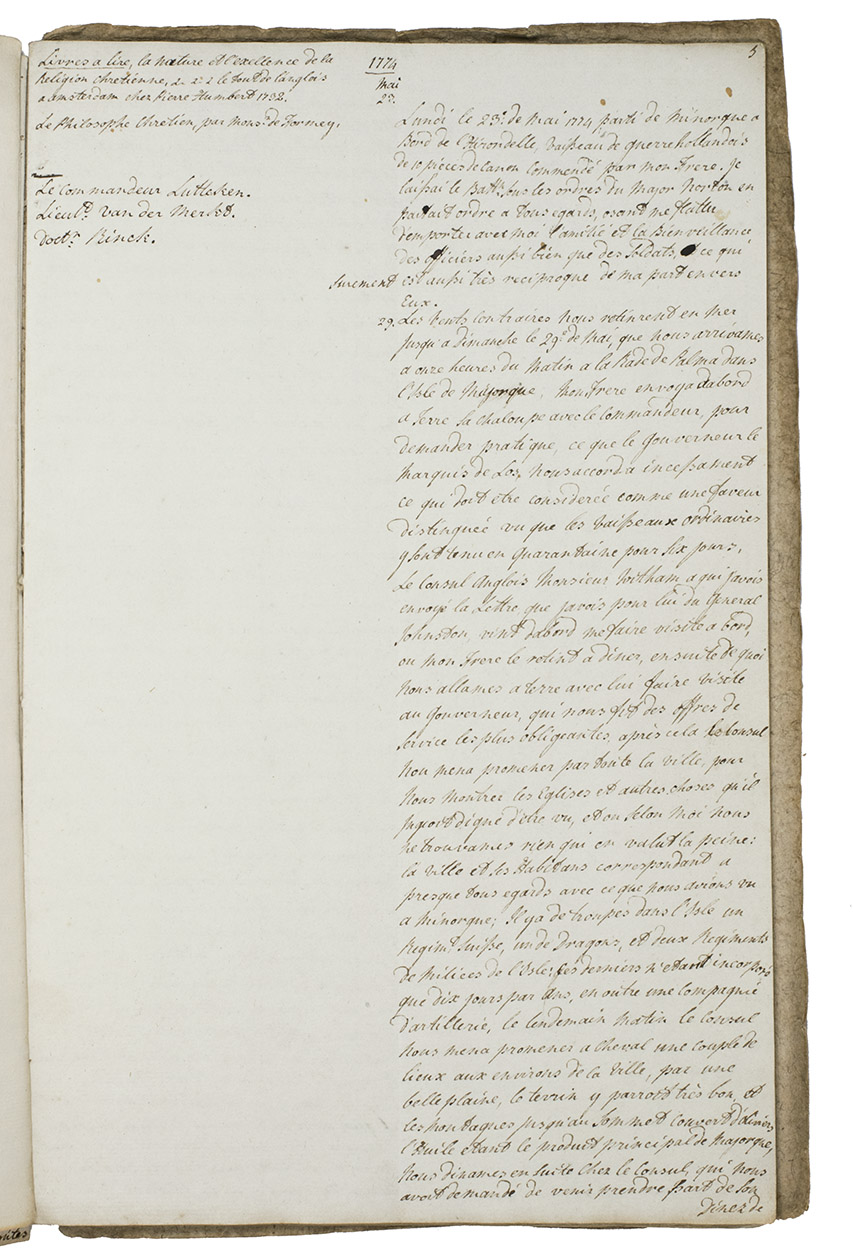 Livres a lire, la nature et l'exellence de la
Religion chretienne, 2 le tout de l'anglois
a amsterdam chez Pierre Humbert 1732.
Le Philosophe Chretien, par Mons.r de Formey.
Le Commandeur Lutteken.
Lieut.t van der Merkt.
Doct.r Rinck.
5
1774
Mai
23.
Lundi le 23.e de Mai 1774, parti de Minorque a
Bord de l'Hirondelle, Vaisseau de guerre hollandois
de 10 pièces de canon commendé par mon Frere. Je
laissai le Batt.n sous les ordres du Major Norton en
parfait ordre a tous egards, osant me flatter
d'emporter avec moi l'amitié et la Bienveillance
des officiers aussi bien que des Soldats, ce qui
surement est aussi très reciproque de ma part envers
Eux.
29. Les Vents contraires nous retinrent en mer
jusqu'a dimanche le 29.e de Mai, que nous arrivames
a onze heures du Matin a la Rade de Palma dans
l'Isle de Majorque, Mon Frere envoya d'abord
a Terre sa chaloupe avec le Commandeur, pour
demander pratique, ce que le Gouverneur le
Marquis de Los, nous accorda incessament
ce qui doit etre considerée comme une faveur
distinqueé vu que les Vaisseaux ordinaires
y sont tenu en quarantaine pour six jours.
Le Consul Anglois Monsieur Witham, a qui j'avois
envoyé la Lettre, que j'avois pour lui du General
Johnston, vint d'abord me faire visite a bord,
ou mon Frere le retint a diner, ensuite de quoi
nous allames a terre avec lui faire visite
au Gouverneur, qui nous fit des offres de
service les plus obligeantes, après cela le Consul
nou mena promener par toute la ville, pour
nous montrer les Eglises et autres choses qu'il
jugeoit digne d'être vu, et ou selon moi nous
ne trouvames rien qui en valut la peine:
la ville et ses Habitans correspondant a
presque tous egards avec ce que nous avions vu
a Minorque; Il y a de troupes dans l'Isle un
Regim.t Suisse, un de Dragons, et deux Regiments
de Milices de l'Isle; Ces derniers n'etant incorporé
que dix jours par Ans, en outre une Compagnie
d'artillerie, le lendemain matin le Consul
nous mena promener a cheval une couple de
lieux aux environs de la ville, par une
belle plaine, le terrin y parroit très bon, et
les montagnes jusqu'au sommet couvert d'oliviers
l'Huile etant le produit principal de Majorque,
Nous dinames ensuite chez le Consul, qui nous
avoit demandé de venir prendre part de son
Diner de